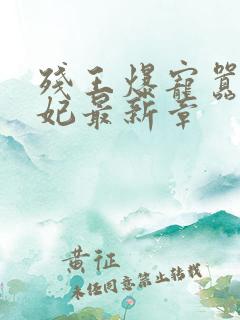 残王爆宠嚣
妃最新章
黄征
未任同意禁止转载